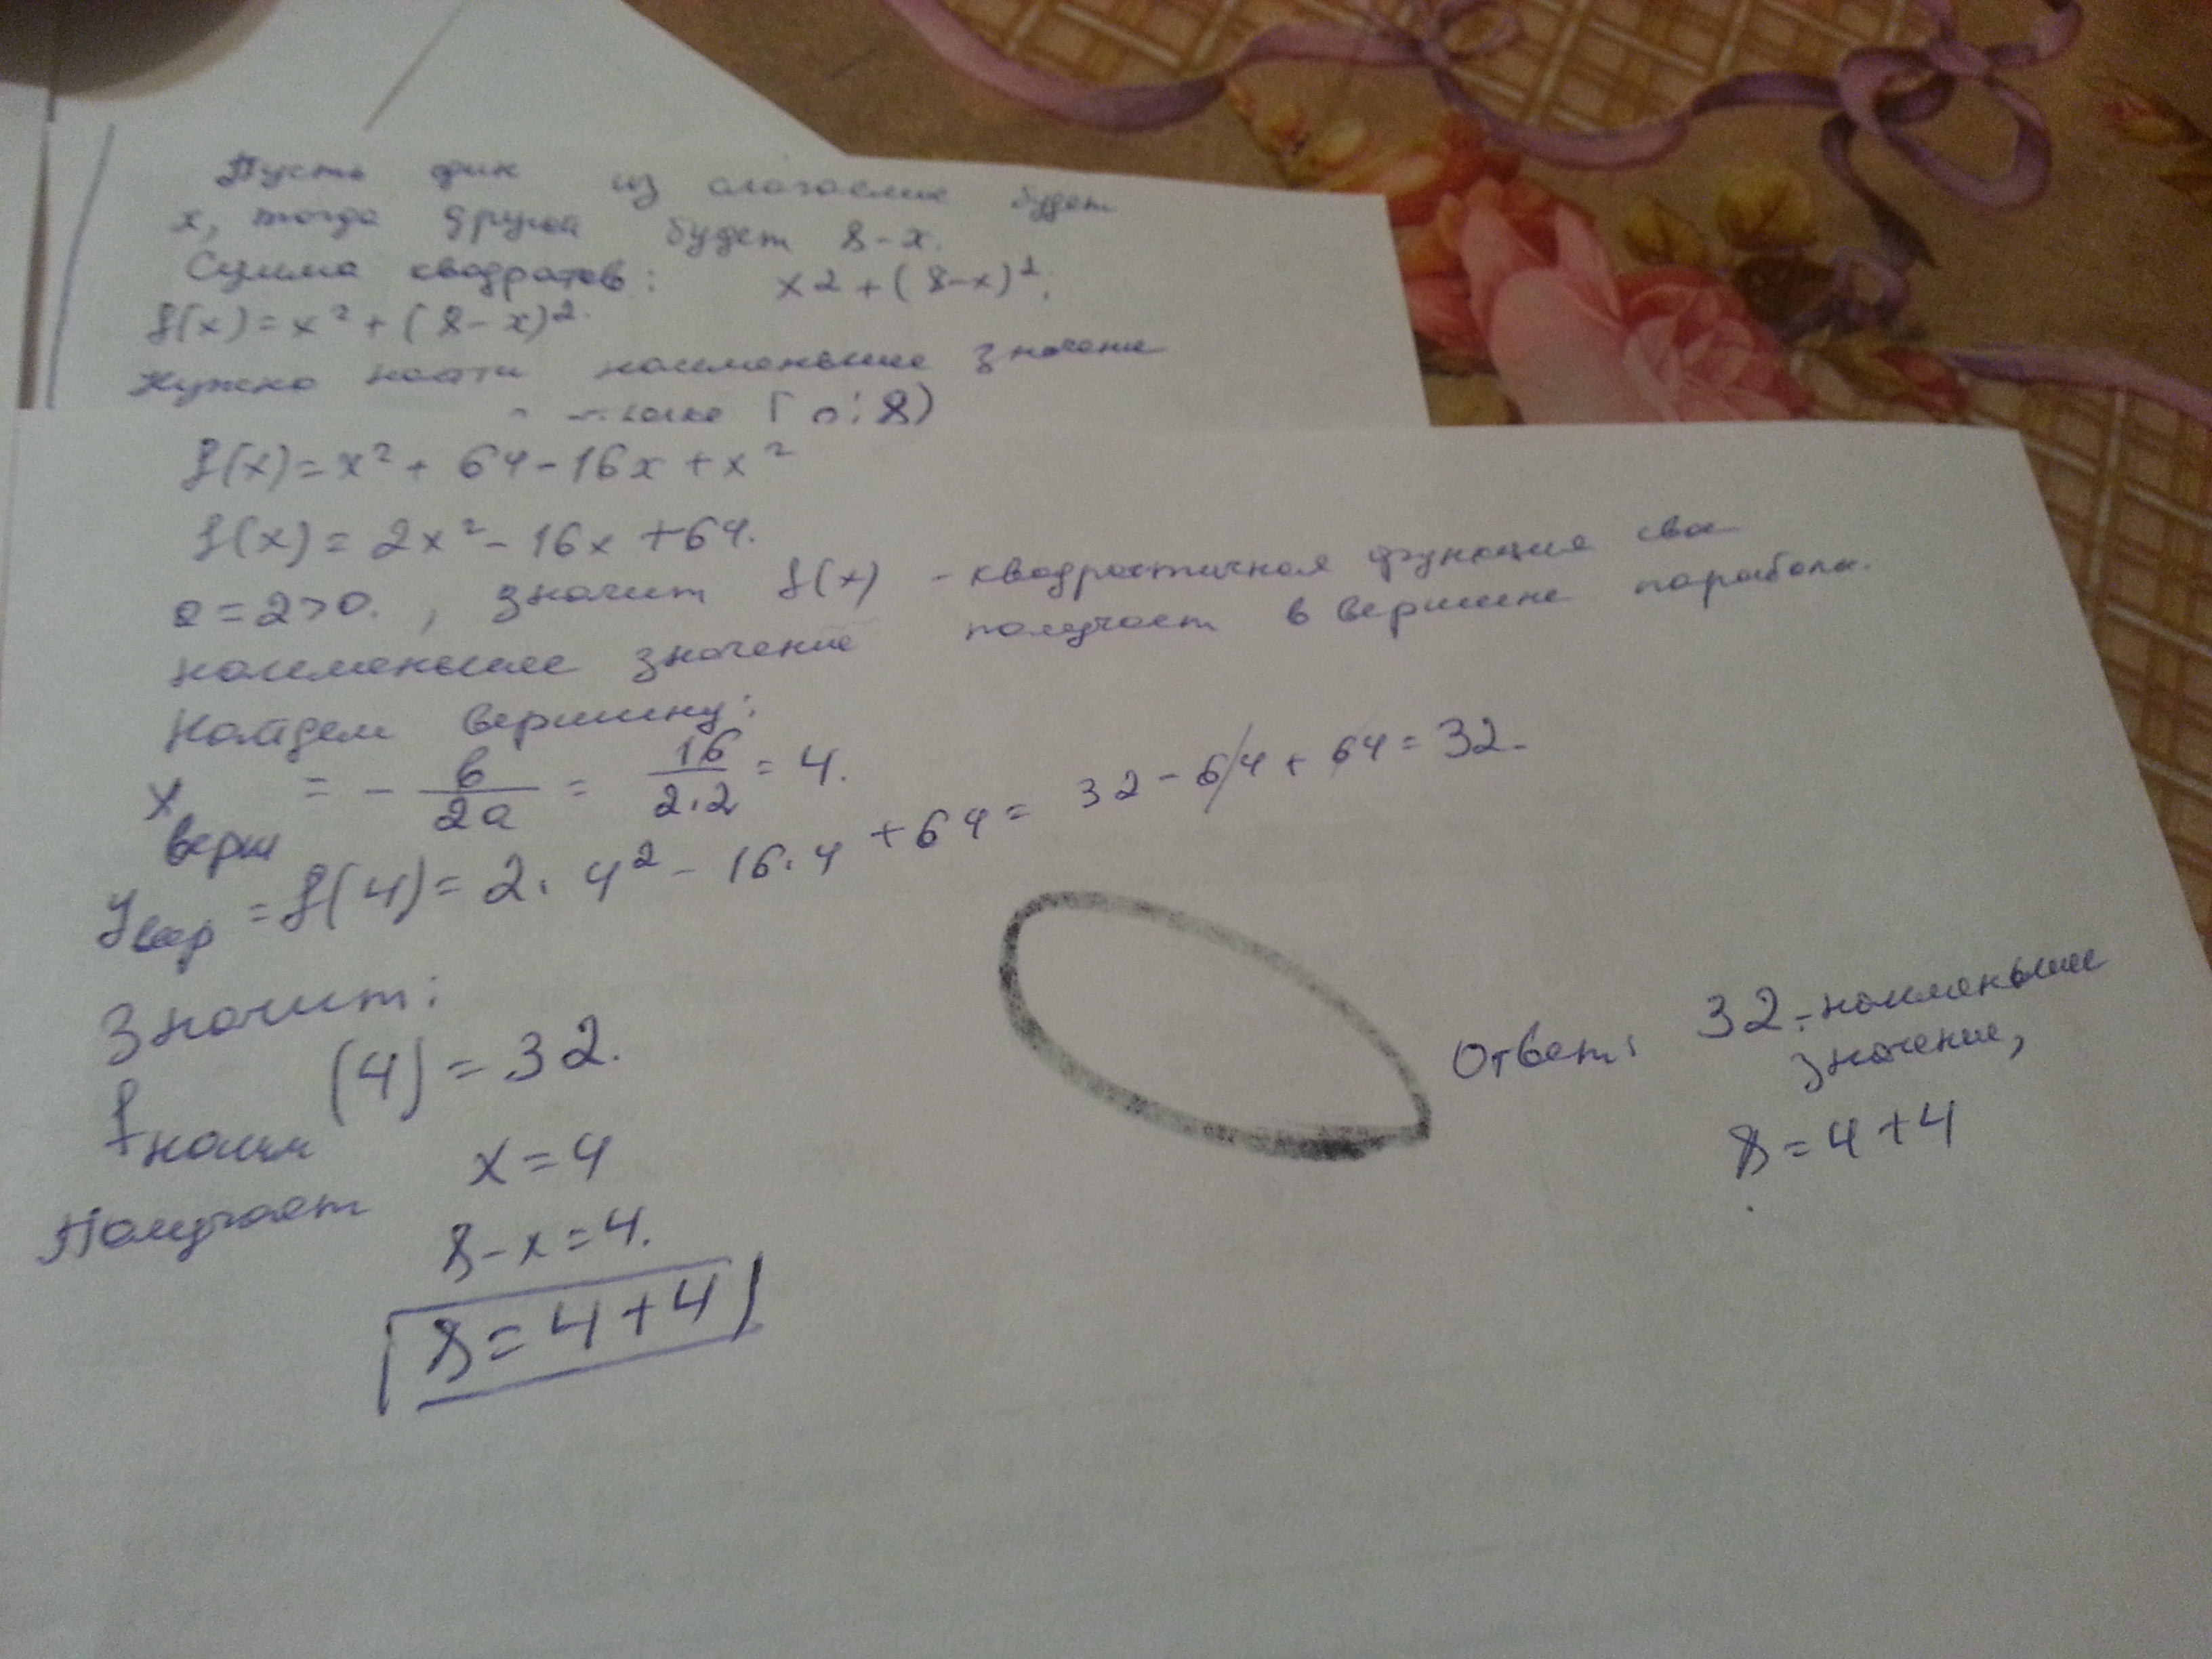 Пусть один из слагаемых будет
x, тогда другой будет 8-x.
Сумма квадратов: x2+(8-x)².
f(x)=x²+(8-x)².
Нужно найти наименьшее значение
[0;8)
f(x)=x²+64-16x+x²
f(x)=2x²-16x+64.
a=2>0., значит f(x) - квадратичная функция свое
наименьшее значение получает в вершине параболы.
Найдем вершину:
x верш = - b/2a = 16/2·2 = 4.
y вер = f(4)=2·4²-16·4+64=32-64+64=32.
Значит:
f наим (4)=32.
Получает x=4
8-x=4.
8=4+4
Ответ: 32-наименьшее
значение,
8=4+4